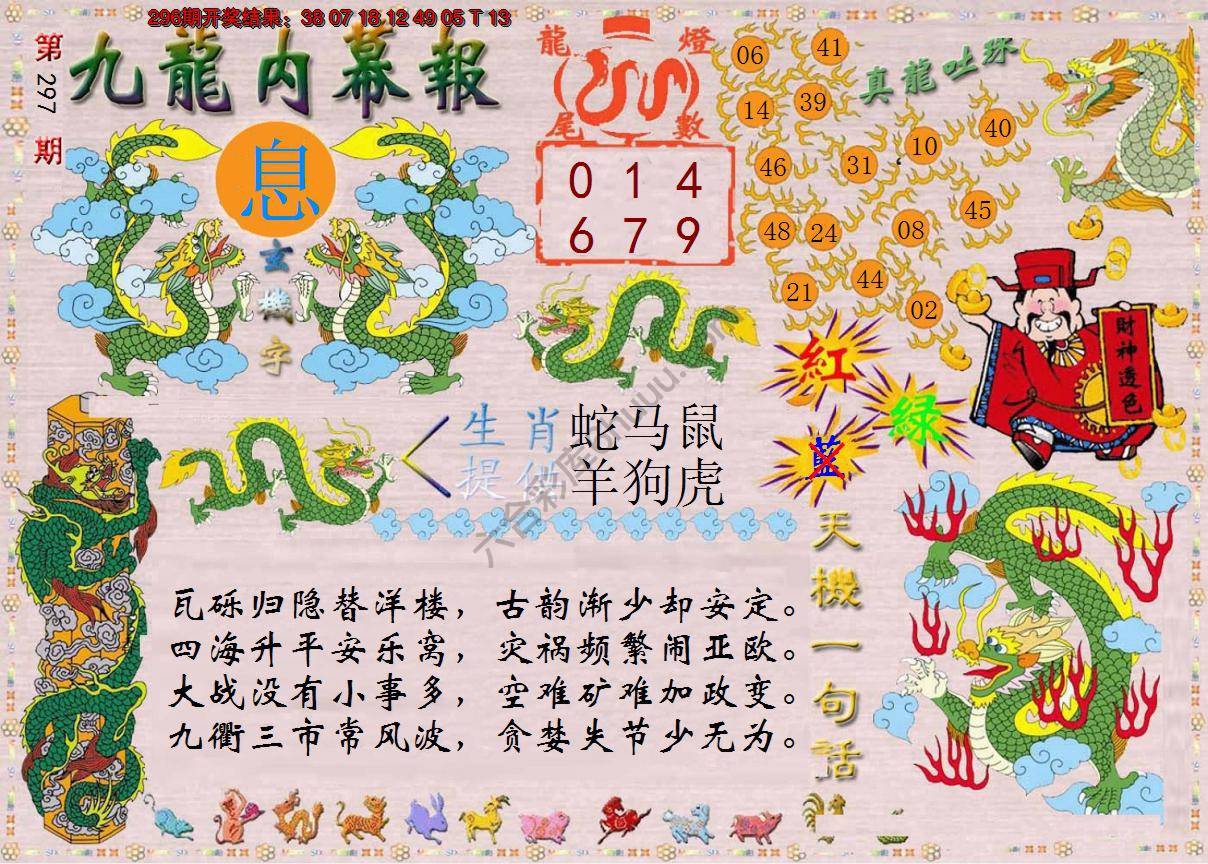 296期开奖结果：38 07 18 12 49 05 T 13
第297期
九龍内幕報
息
玄機字
龍燈
尾數
0 1 4
6 7 9
真龍吐珠
06
41
14
39
46
31
10
40
48
24
08
45
21
44
02
財神透色
紅
綠
藍
生肖
提供
蛇马鼠
羊狗虎
天機一句話
瓦砾归隐替洋楼，古韵渐少却安定。
四海升平安乐窝，灾祸频繁闹亚欧。
大战没有小事多，空难矿难加政变。
九衢三市常风波，贪婪失节少无为。